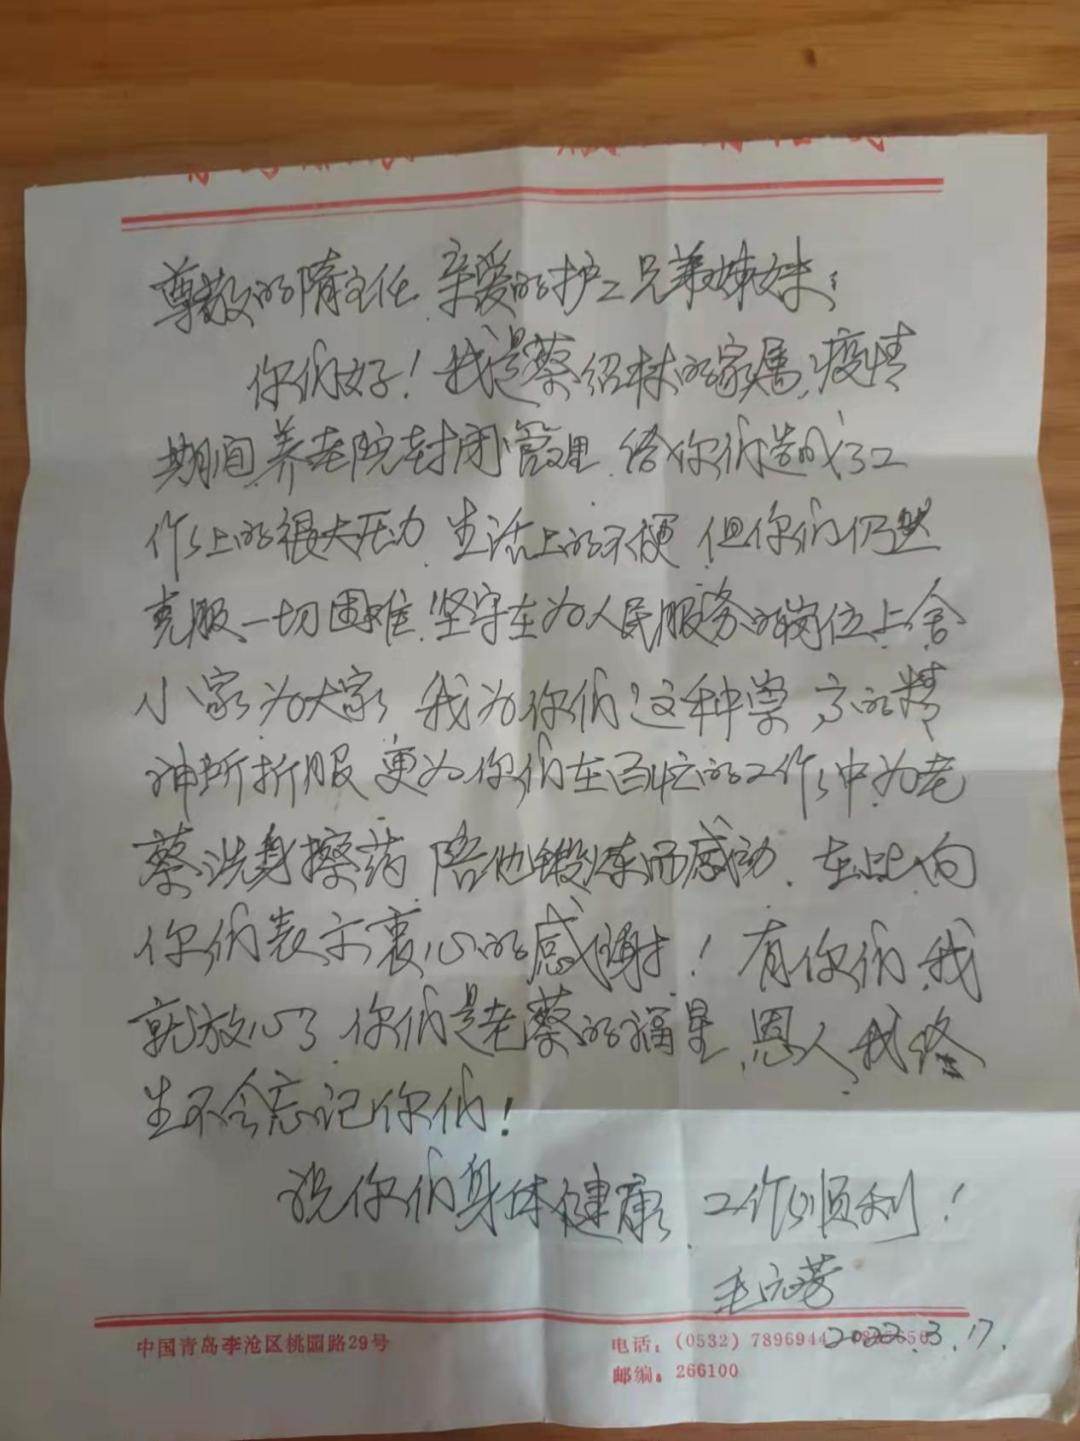 尊敬的隋主任 亲爱的护工兄弟姊妹：
你们好！我是蔡绍林的家属，疫情
期间养老院封闭管理 给你们造成了工
作上的很大压力 生活上的不便 但你们仍然
克服一切困难 坚守在为人民服务的岗位上舍
小家为大家 我为你们这种崇高的精
神所折服 更为你们在百忙的工作中为老
蔡洗身擦药 陪他锻炼而感动．在此向
你们表示衷心的感谢！有你们，我
就放心了 你们是老蔡的福星 恩人，我终
生不会忘记你们！
祝你们身体健康、工作顺利！
毛元芳
2022.3.17.
中国青岛李沧区桃园路29号
电话：(0532) 7896944
邮编：266100